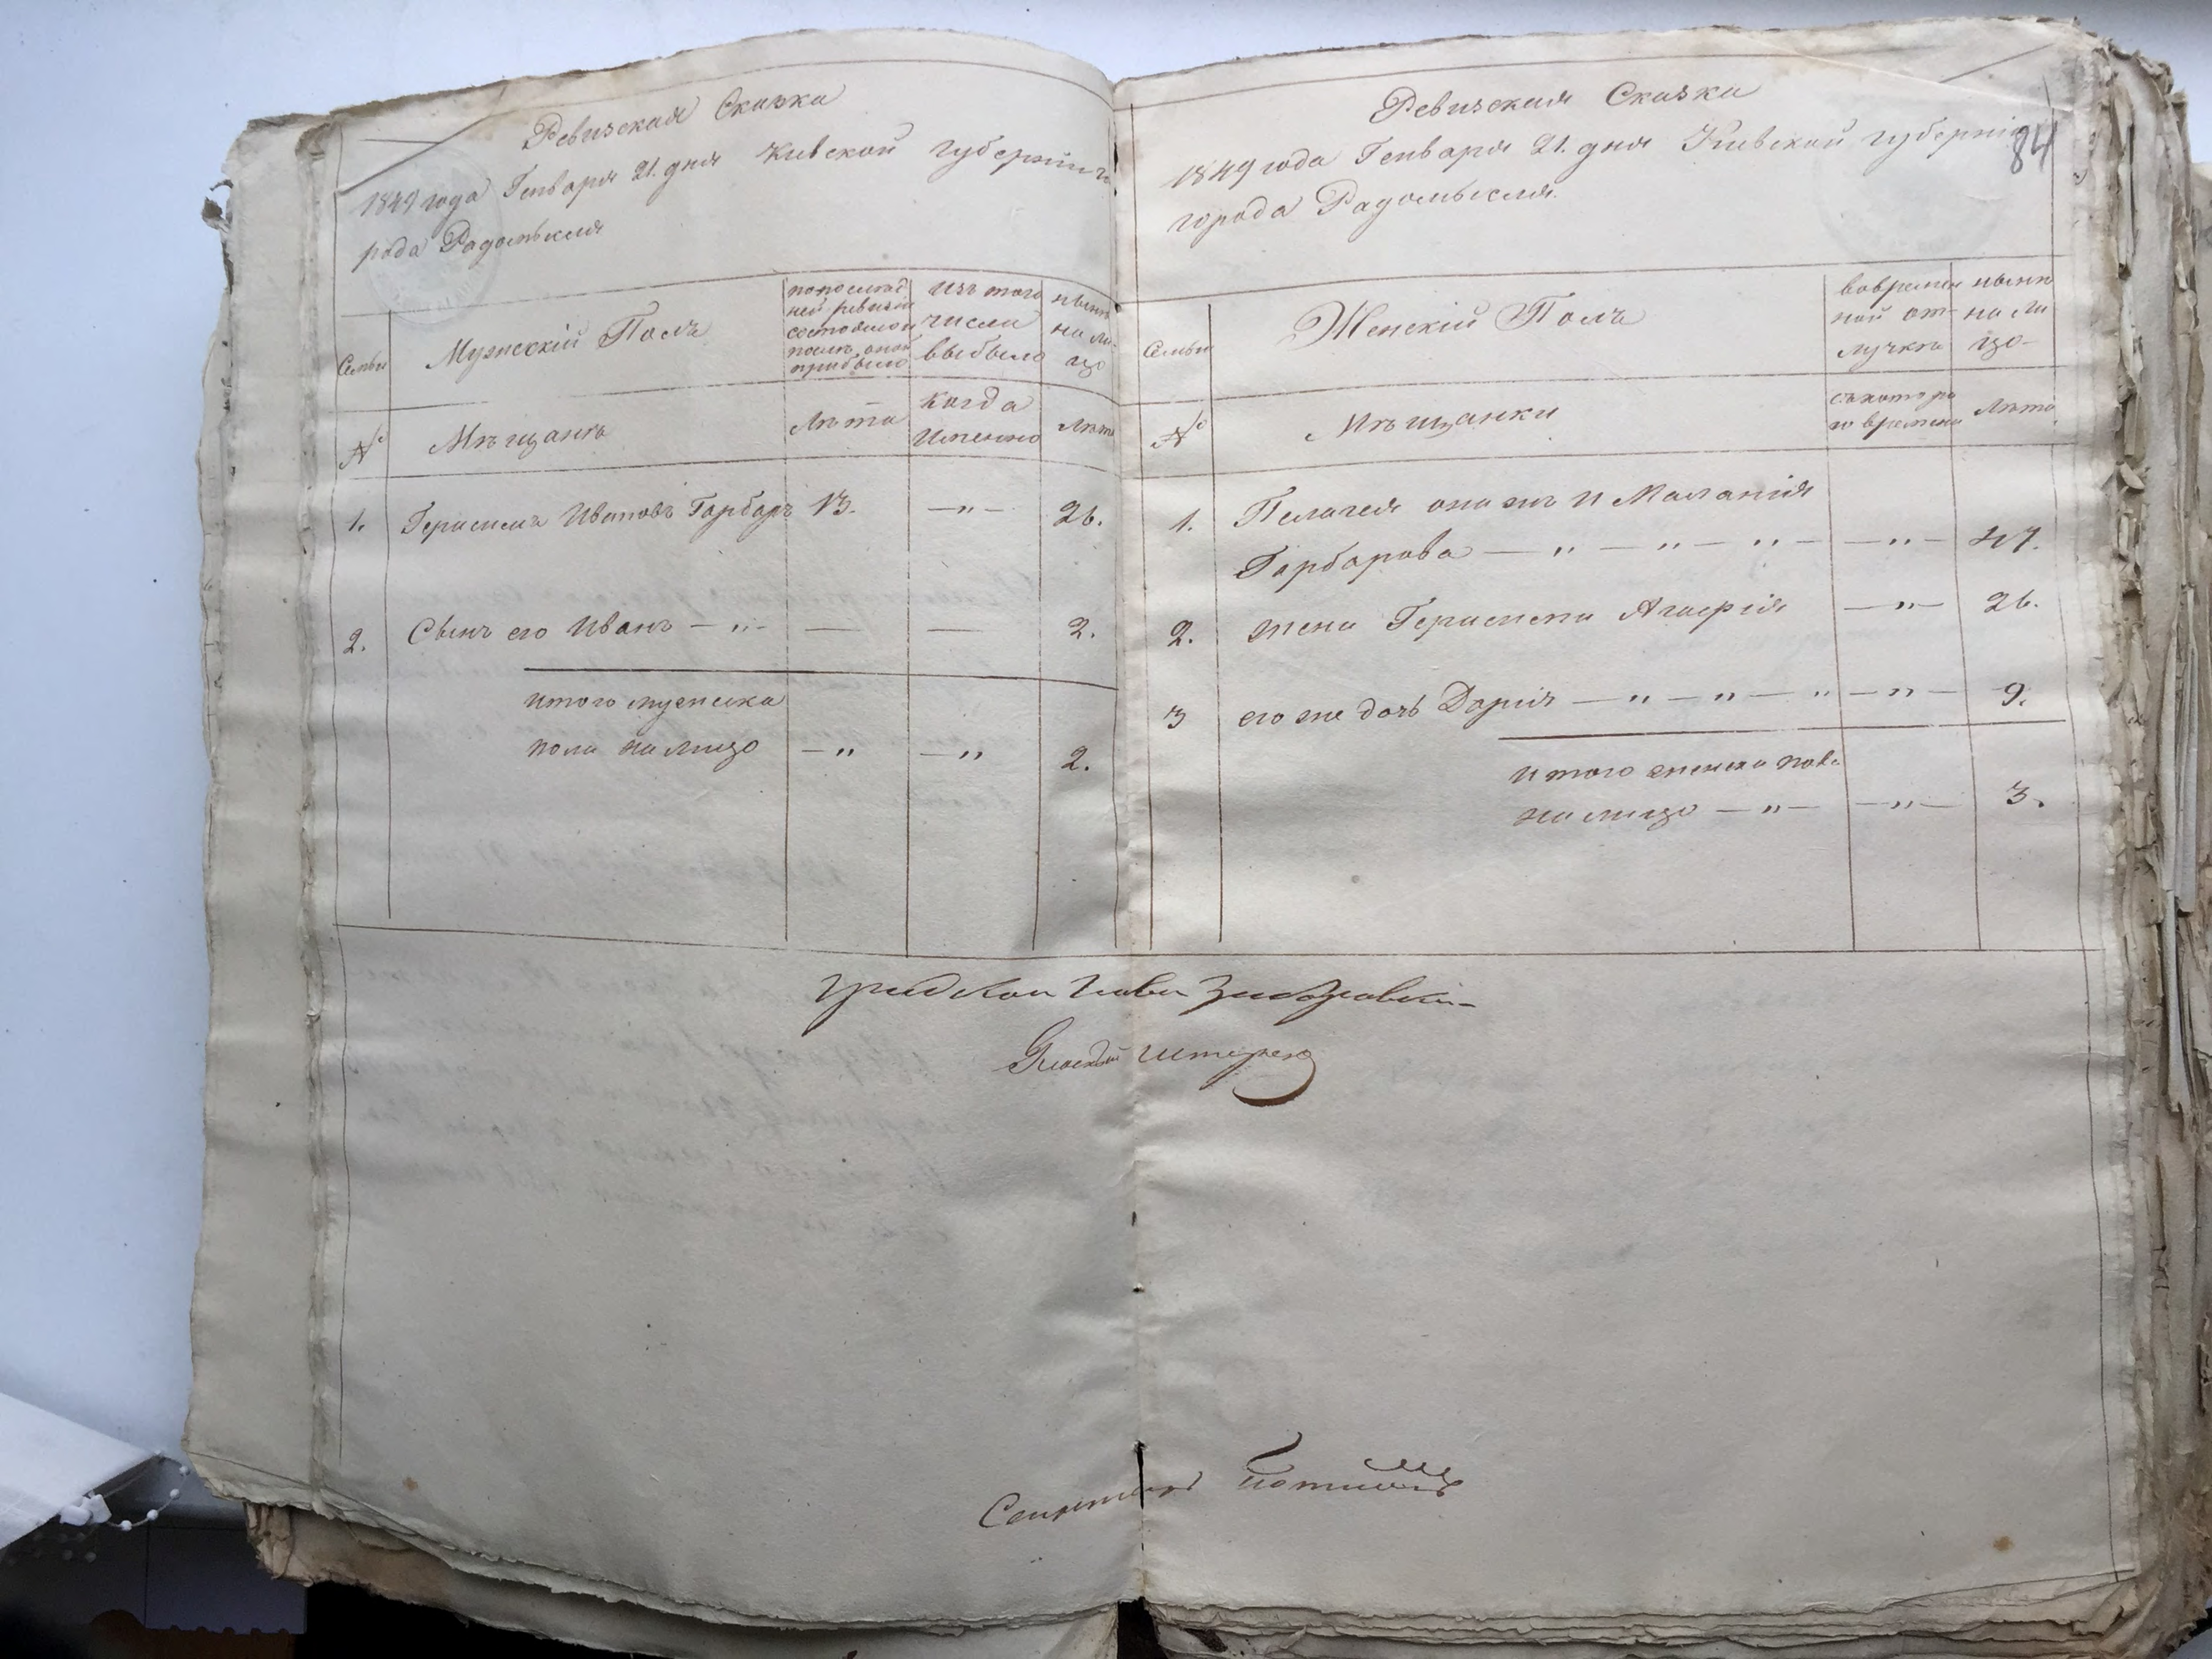 Ревизская Сказка
1849 года Генваря 21. дня Киевской губернии го
рода Радомысля
Семьи
Мужескій Полъ
по послед
ней ревизіи
состояло и
после оной
прибыло
Изъ того
числа
выбыло
ныне
на ли-
цо
№
Мѣщанъ
Лѣта
когда
именно
Лѣта
1.
Герасимъ Ивановъ Гарбаръ
13.
—„—
26.
2.
Сынъ его Иванъ —„—
—
—
2.
итого мужеска
пола на лицо —„ —„ 2.
84
Ревизская Сказка
1849 года Генваря 21. дня Киевской губерніи
города Радомысля.
Семьи
Женскій Полъ
во времен
ной от-
лучкѣ
нынѣ
на ли
цо-
№
Мѣщанки
съ которо
го времени
Лѣта
1.
Пелагея она жъ и Маланія
Гарбарова — „ — „ — „ — —„— 47.
2.
жена Герасима Агафія —„— 26.
3
его же дочь Дарія — „ — „ — „ —„— 9.
итого женска пола
на лицо —„— —„— 3.
градской Глава